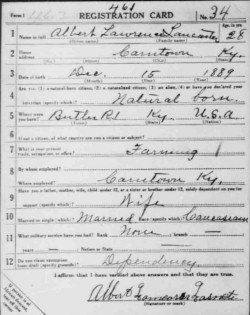 461
Form 1 REGISTRATION CARD No. 34
1 Name in full Albert Lawrence Lancaster 28
(Given name) (Family name) Age, in yrs.
2 Home address Carntown Ky.
3 Date of birth Dec. 15 1889
(Month) (Day) (Year)
4 Are you (1) a natural-born citizen, (2) a naturalized citizen, (3) an alien, (4) or have you declared your
intention (specify which)? Natural born
5 Where were you born? Butler R1 Ky. U.S.A
6 If not a citizen, of what country are you a citizen or subject?
7 What is your present trade, occupation, or office? Farming
8 By whom employed?
Where employed? Carntown Ky.
9 Have you a father, mother, wife, child under 12, or a sister or brother under 12, solely dependent on you for
support (specify which)? Wife
10 Married or single (which)? Married Race (specify which)? Caucasian
11 What military service have you had? Rank None ; branch —
years — ; Nation or State —
12 Do you claim exemption from draft (specify grounds)? Dependency
I affirm that I have verified above answers and that they are true.
Albert
(Signature or mark)